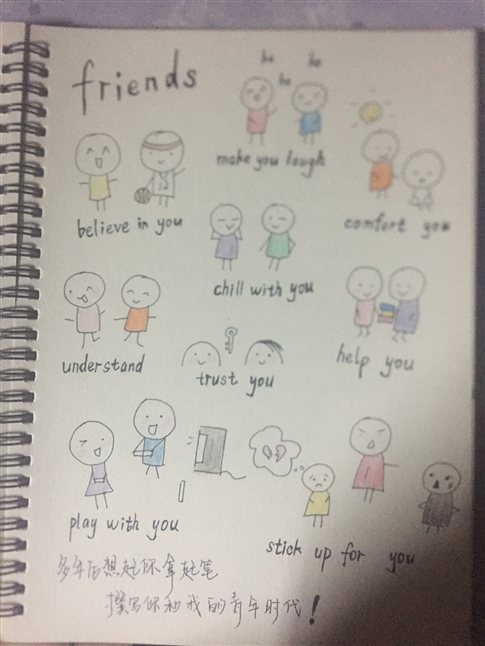 friends
he he
he
make you laugh
believe in you
comfort you
chill with you
understand
trust you
help you
play with you
stick up for you
多年后想起你拿起笔
撰写你和我的青年时代!
12